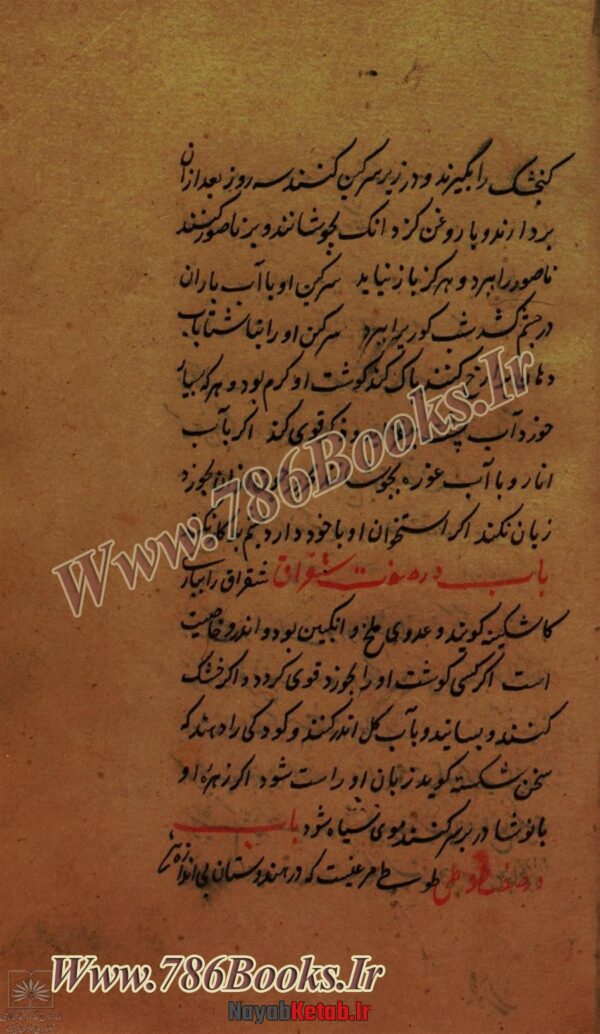 کنجشک را بگیرند و در زیر سرکین کنند سه روز بعد از ان
بردارند و با روغن کردانک بجوشانند و بر ناصور کنند
ناصور را ببرد و هرکز باز نیاید سرکین او با آب باران
در چشم کشد شب کوریرا ببرد سرکین او را بناشتا باب
کنند پاک کند کوشت او کرم بود و هر که بسیار
خورد آب قوی کند اکر با آب
انار و با آب غوره بخورد
زیان نکند اکر استخوان او با خود دارد
باب در صفت شقراق شقراق را بپارسی
کاشکینه کویند و عدوی ملخ و انکبین بود و اندرو خاصیت
است اکر کسی کوشت او را بخورد قوی کردد و اکر خشک
کنند و بسایند و بآب کل اندر کنند و کودکی را دهند که
سخن شکسته کوید زبان او راست شود اکر زهرهٔ او
با نوشا در بر سر کنند موی سیاه شود باب
طوطی مرغیست که در هندوستان بی اندازه
www.786Books.Ir
www.786Books.Ir
NayabKetab.ir